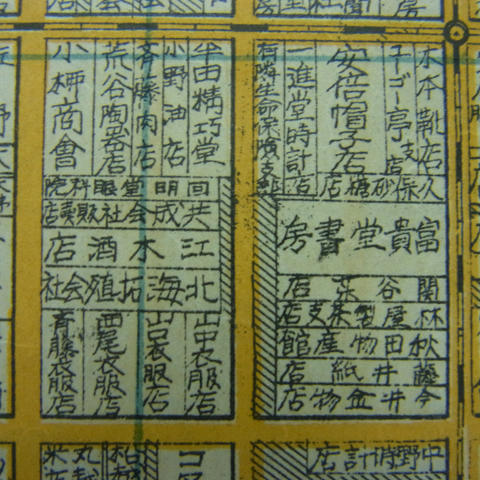 木本靴店
ユーゴー亭支店
安倍帽子店
一進堂時計店
久保砂糖店
富貴堂書房
関谷茶店
林屋製茶支店
秋田物産館
藤井紙店
今井金物店
中野時計店
精巧堂
小野油店
斉藤肉店
荒谷陶器店
商會
回明堂眼科院
共成会社販売店
江木酒店
北海拓殖会社
山中衣服店
山口衣服店
西尾衣服店
斉藤衣服店